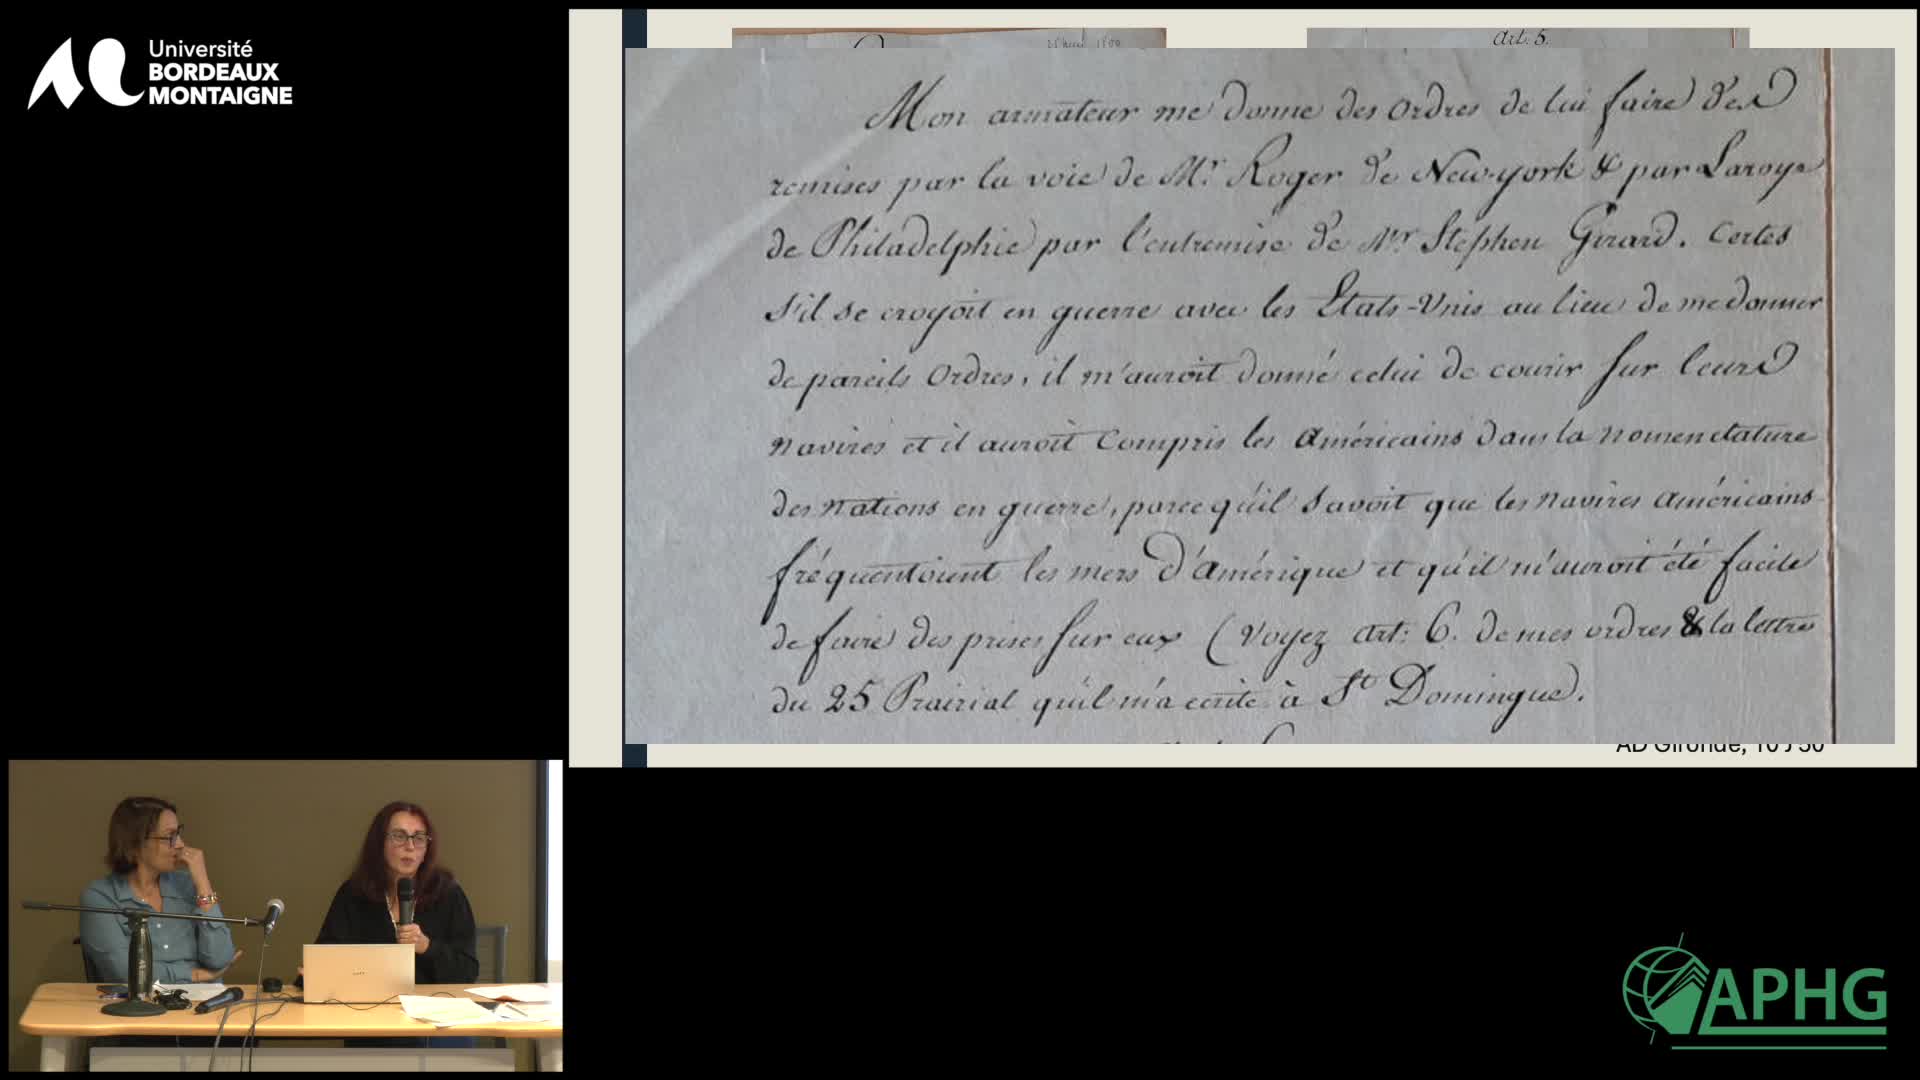 Université
BORDEAUX
MONTAIGNE
Art. 5.
Mon armateur me donne des Ordres de lui faire des
remises par la voie de Mr. Roger de New-york & par Laroye
de Philadelphie par l'entremise de Mr. Stephen Girard. Certes
s'il se croyoit en guerre avec les Etats-Unis au lieu de me donner
de pareils Ordres, il m'auroit donné celui de courir sur leurs
navires et il auroit Compris les américains dans la nomenclature
des nations en guerre, parce qu'il savoit que les navires américains
fréquentoient les mers d'amérique et qu'il m'auroit été facile
de faire des prises sur eux (Voyez art: 6. de mes ordres & la lettre
du 25 Prairial qu'il m'a écrite à St Domingue).
AD Gironde, 10 J 50
APHG